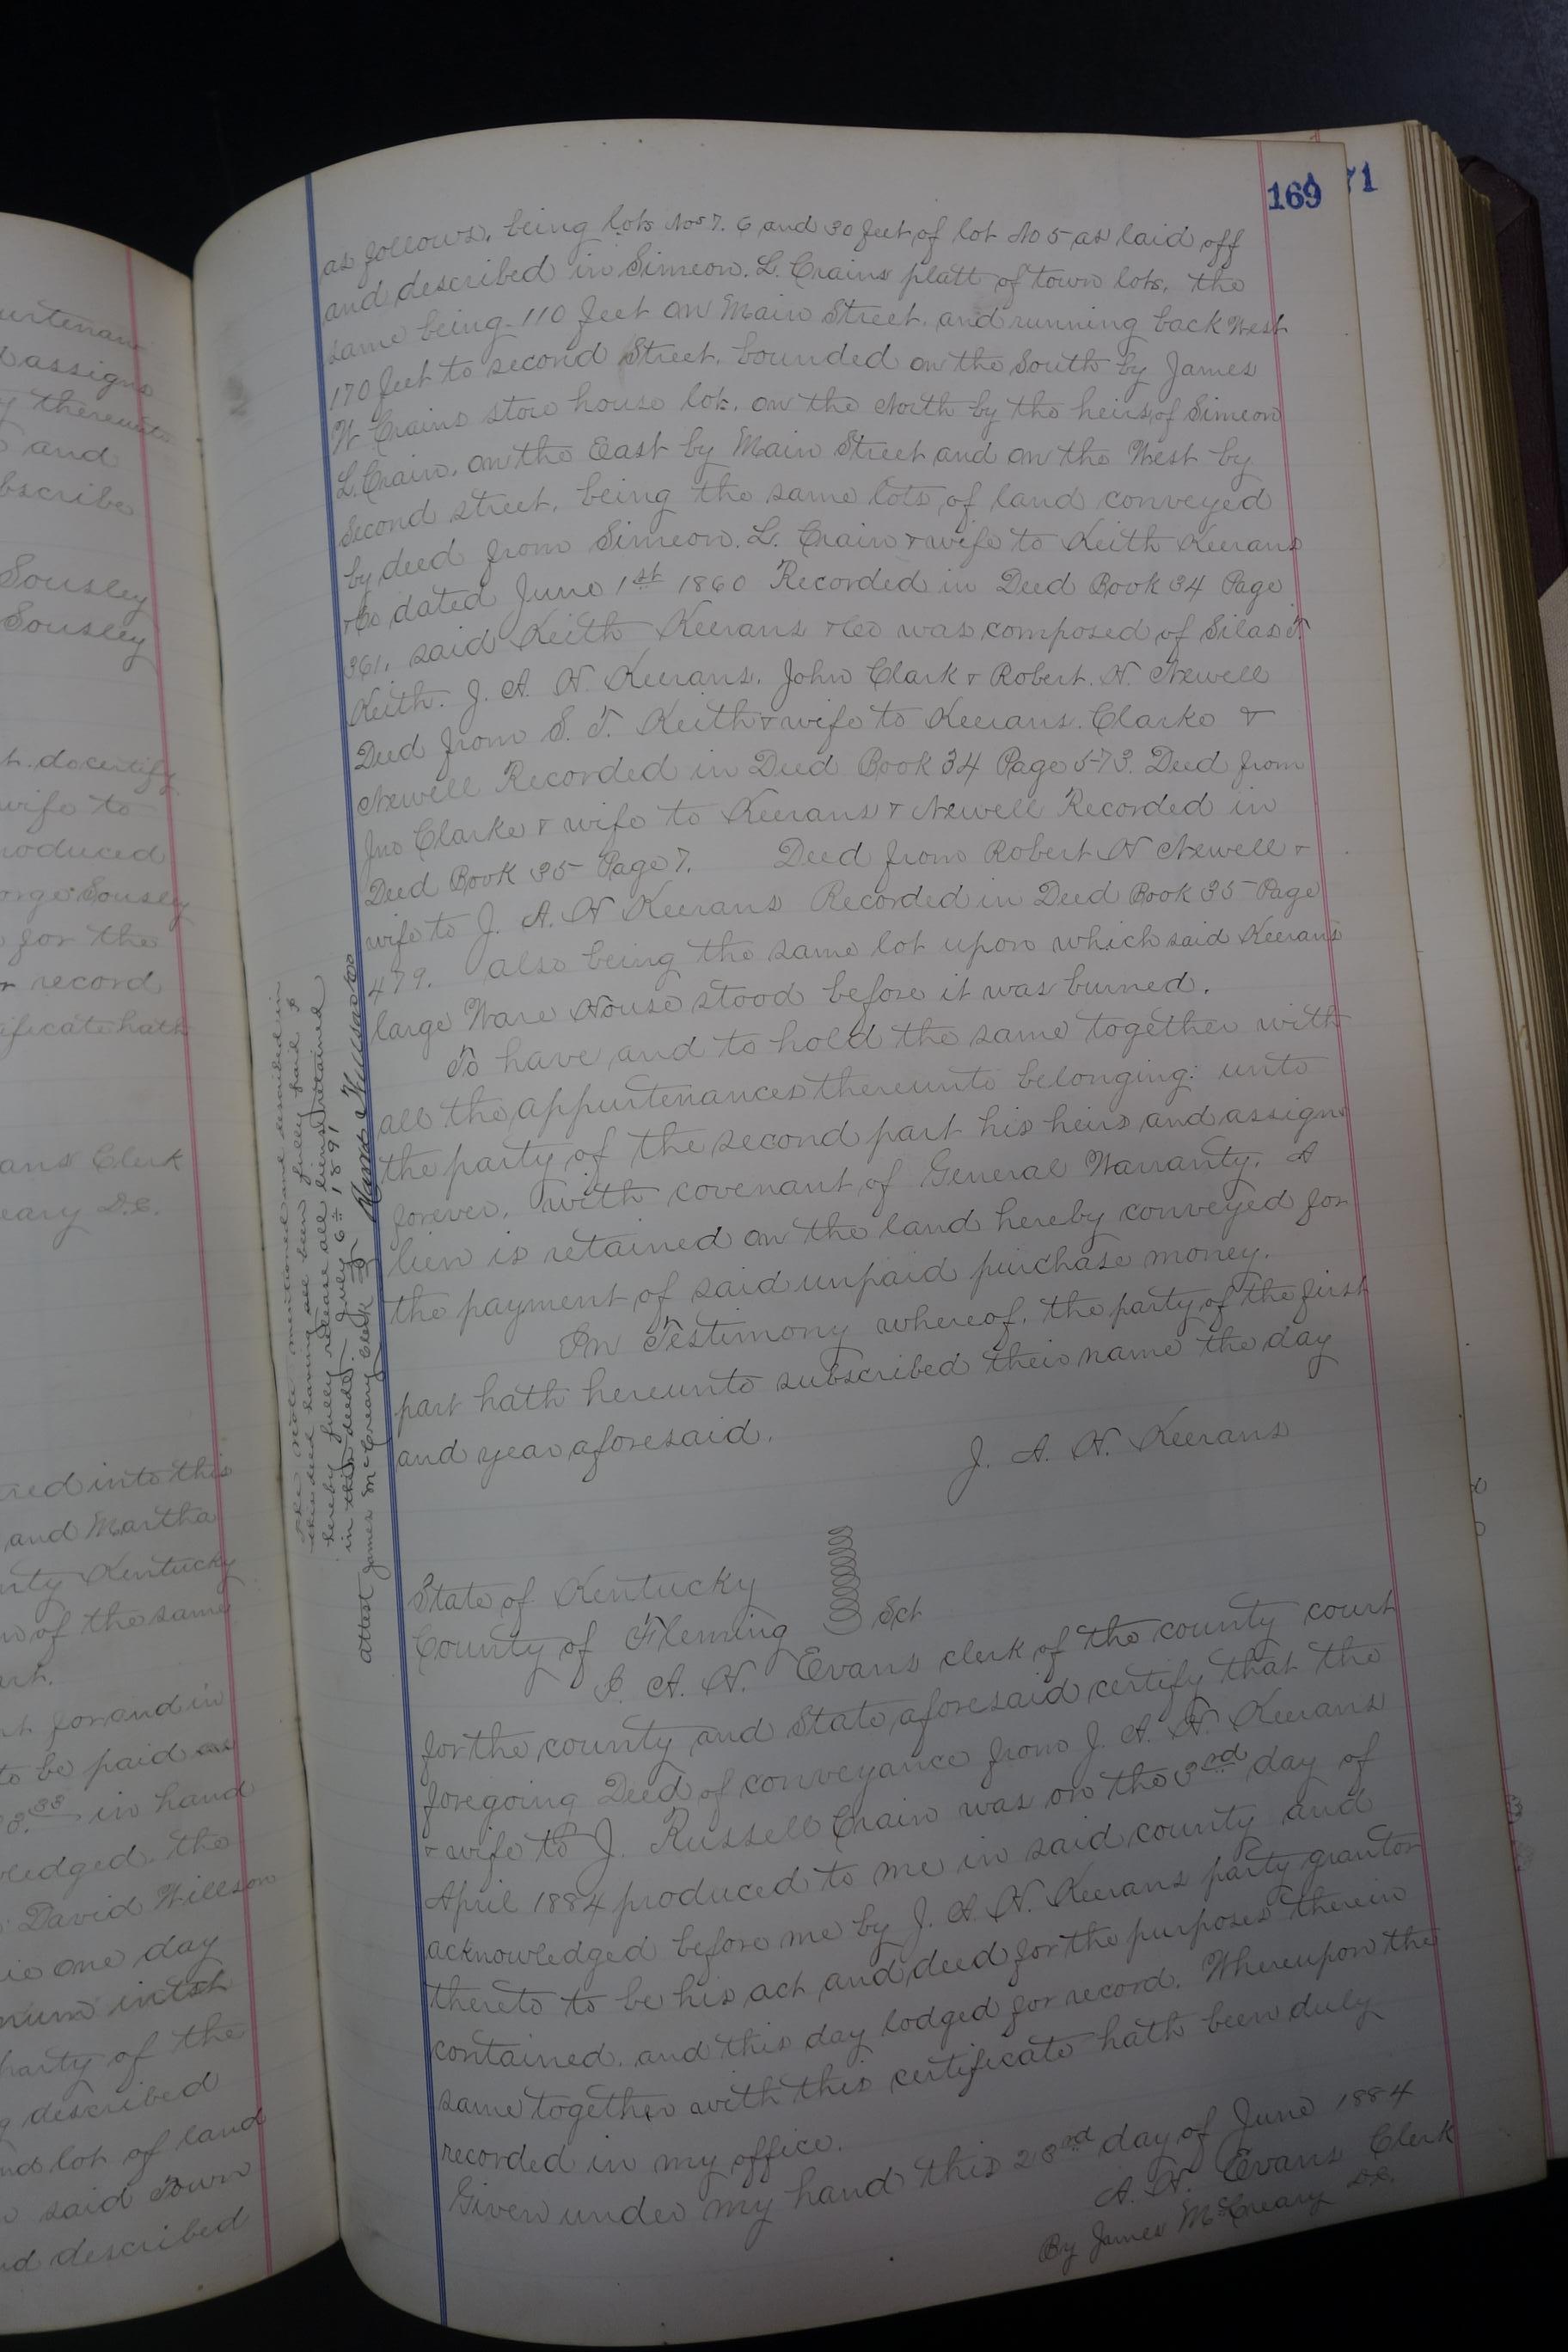 169
71
as follows. being lots Nos 7. 6 and 30 feet of lot No 5 as laid off
and described in Simeon. L. Crains platt of town lots. the
same being 110 feet on Main Street. and running back West
170 feet to second Street. bounded on the South by James
W Crains store house lot. on the North by the heirs of Simeon
L. Crain. on the East by Main Street and on the West by
Second street. being the same lots of land conveyed
by deed from Simeon. L. Crain & wife to Keith Keerans
& Co dated June 1st 1860 Recorded in Deed Book 34 Page
361. said Keith Keerans & Co was composed of Silas T.
Keith. J. A. H. Keerans. John Clark & Robert. H. Newell
Deed from S. T. Keith & wife to Keerans. Clarke &
Newell Recorded in Deed Book 34 Page 573. Deed from
Jno Clarke & wife to Keerans & Newell Recorded in
Deed Book 35 Page 7. Deed from Robert H Newell &
wife to J. A. H Keerans Recorded in Deed Book 35 Page
479. also being the same lot upon which said Keerans
large Ware House stood before it was burned.
To have and to hold the same together with
all the appurtenances thereunto belonging: unto
the party of the second part his heirs and assigns
forever. with covenant of General Warranty. A
lien is retained on the land hereby conveyed for
the payment of said unpaid purchase money.
In Testimony whereof. the party of the first
part hath hereunto subscribed their name the day
and year aforesaid.
J. A. H. Keerans
State of Kentucky
County of Fleming Sct
I. A. H. Evans clerk of the county court
for the county and State aforesaid certify that the
foregoing Deed of conveyance from J. A. H. Keerans
& wife to J. Russell Crain was on the 3rd day of
April 1884 produced to me in said county and
acknowledged before me by J. A. H. Keerans party grantor
thereto to be his act and deed for the purposes therein
contained. and this day lodged for record. Whereupon the
same together with this certificate hath been duly
recorded in my office.
Given under my hand this 23rd day of June 1884
A. H. Evans Clerk
By James McCreary D.C.
The note mentioned and described in
this deed having all been fully paid I
hereby fully release all liens retained
in this deed. July 6th 1891
attest James McCreary Clerk
urtenan
d assigns
y thereunto
and
bscribe
Sousley
Sousley
t. do certify
wife to
roduced
orge Sousley
for the
r record
ificate hath
ans Clerk
eary D.C.
red into this
and Martha
nty Kentucky
of the same
art.
nt for and in
to be paid as
in hand
ledged. the
David Willson
one day
num intst
party of the
g described
nd lot of land
said Town
nd described